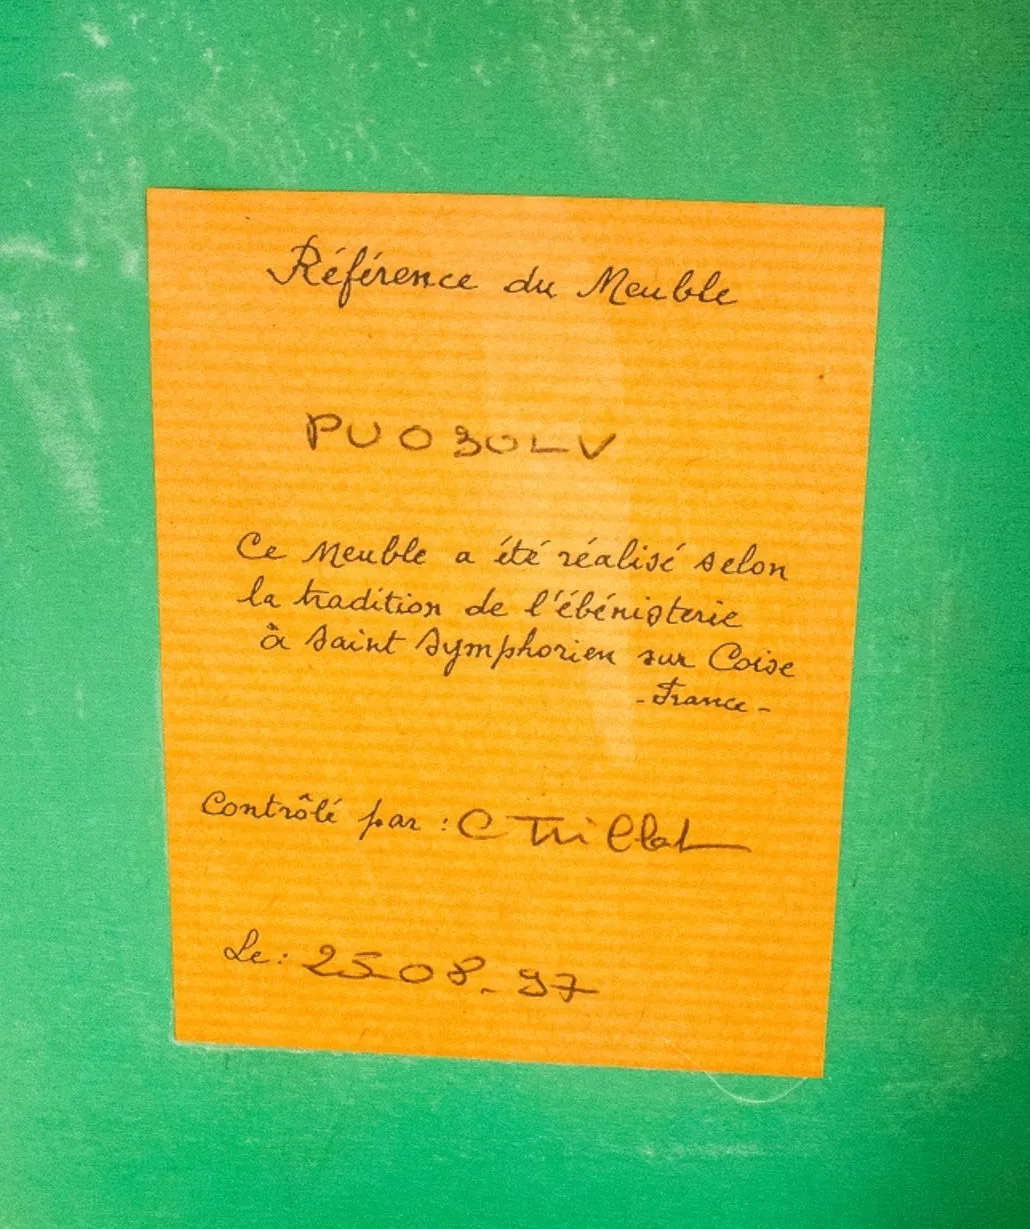 Référence du Meuble
PU030LV
Ce Meuble a été réalisé selon
la tradition de l'ébénisterie
à Saint Symphorien sur Coise
- France -
Contrôlé par : C Trillat
Le : 25-08-97